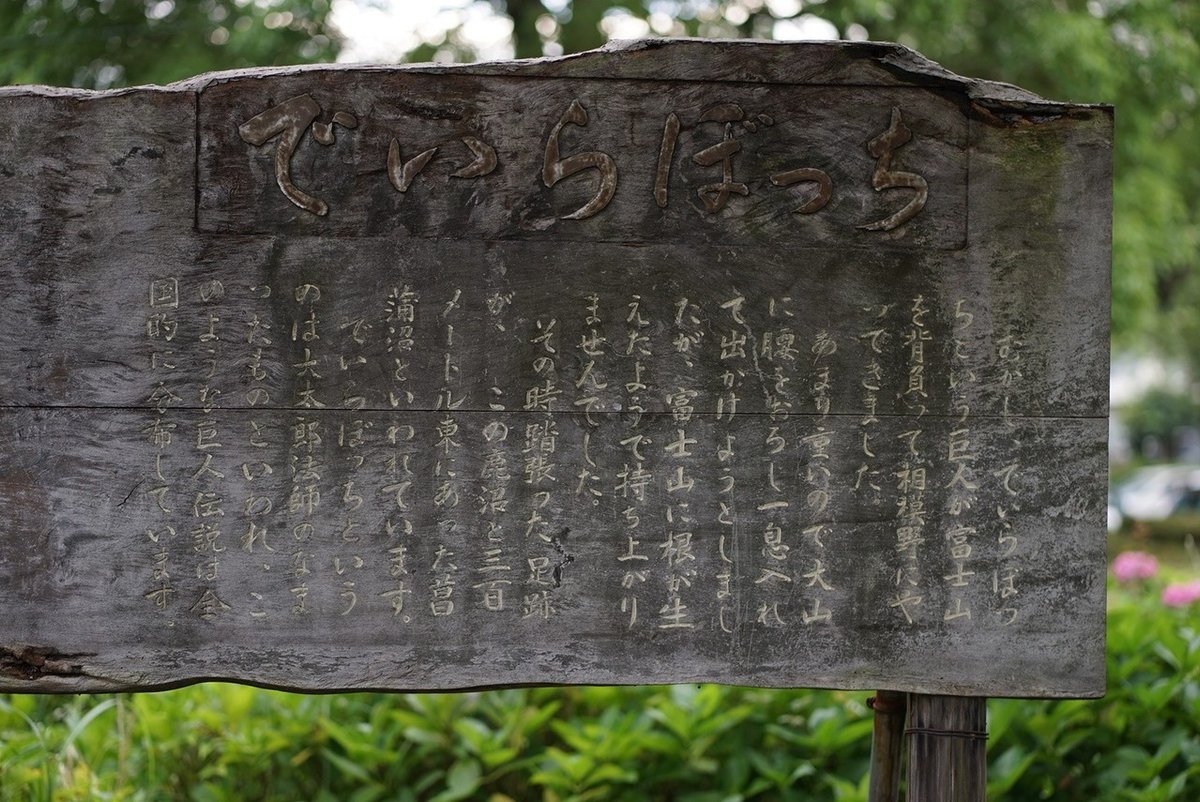 でいらぼっち
むかし、でいらぼっ
ちという巨人が富士山
を背負って相模野にや
ってきました。
あまり重いので大山
に腰をおろし一息入れ
て出かけようとしまし
たが、富士山に根が生
えたようで持ち上がり
ませんでした。
その時踏張った足跡
が、この鹿沼と三百
メートル東にあった菖
蒲沼といわれています。
でいらぼっちという
のは大太郎法師のなま
ったものといわれ、こ
のような巨人伝説は全
国的に分布しています。